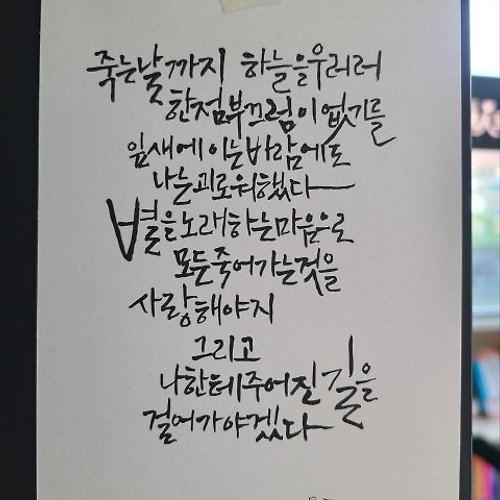 죽는날까지 하늘을우러러
한점부끄럼이없기를
잎새에이는바람에도
나는괴로워했다
별을노래하는마음으로
모든죽어가는것을
사랑해야지
그리고
나한테주어진길을
걸어가야겠다